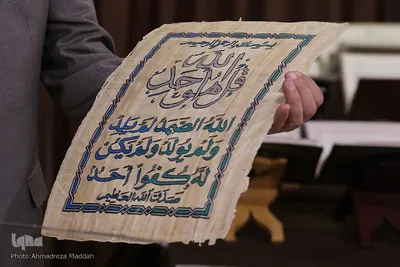 بسم الله الرحمن الرحيم
قل هو الله أحد
الله الصمد لم يلد
ولم يولد ولم يكن
له كفوا أحد
صدق الله العظيم
iqna
Photo: Ahmadreza Maddah